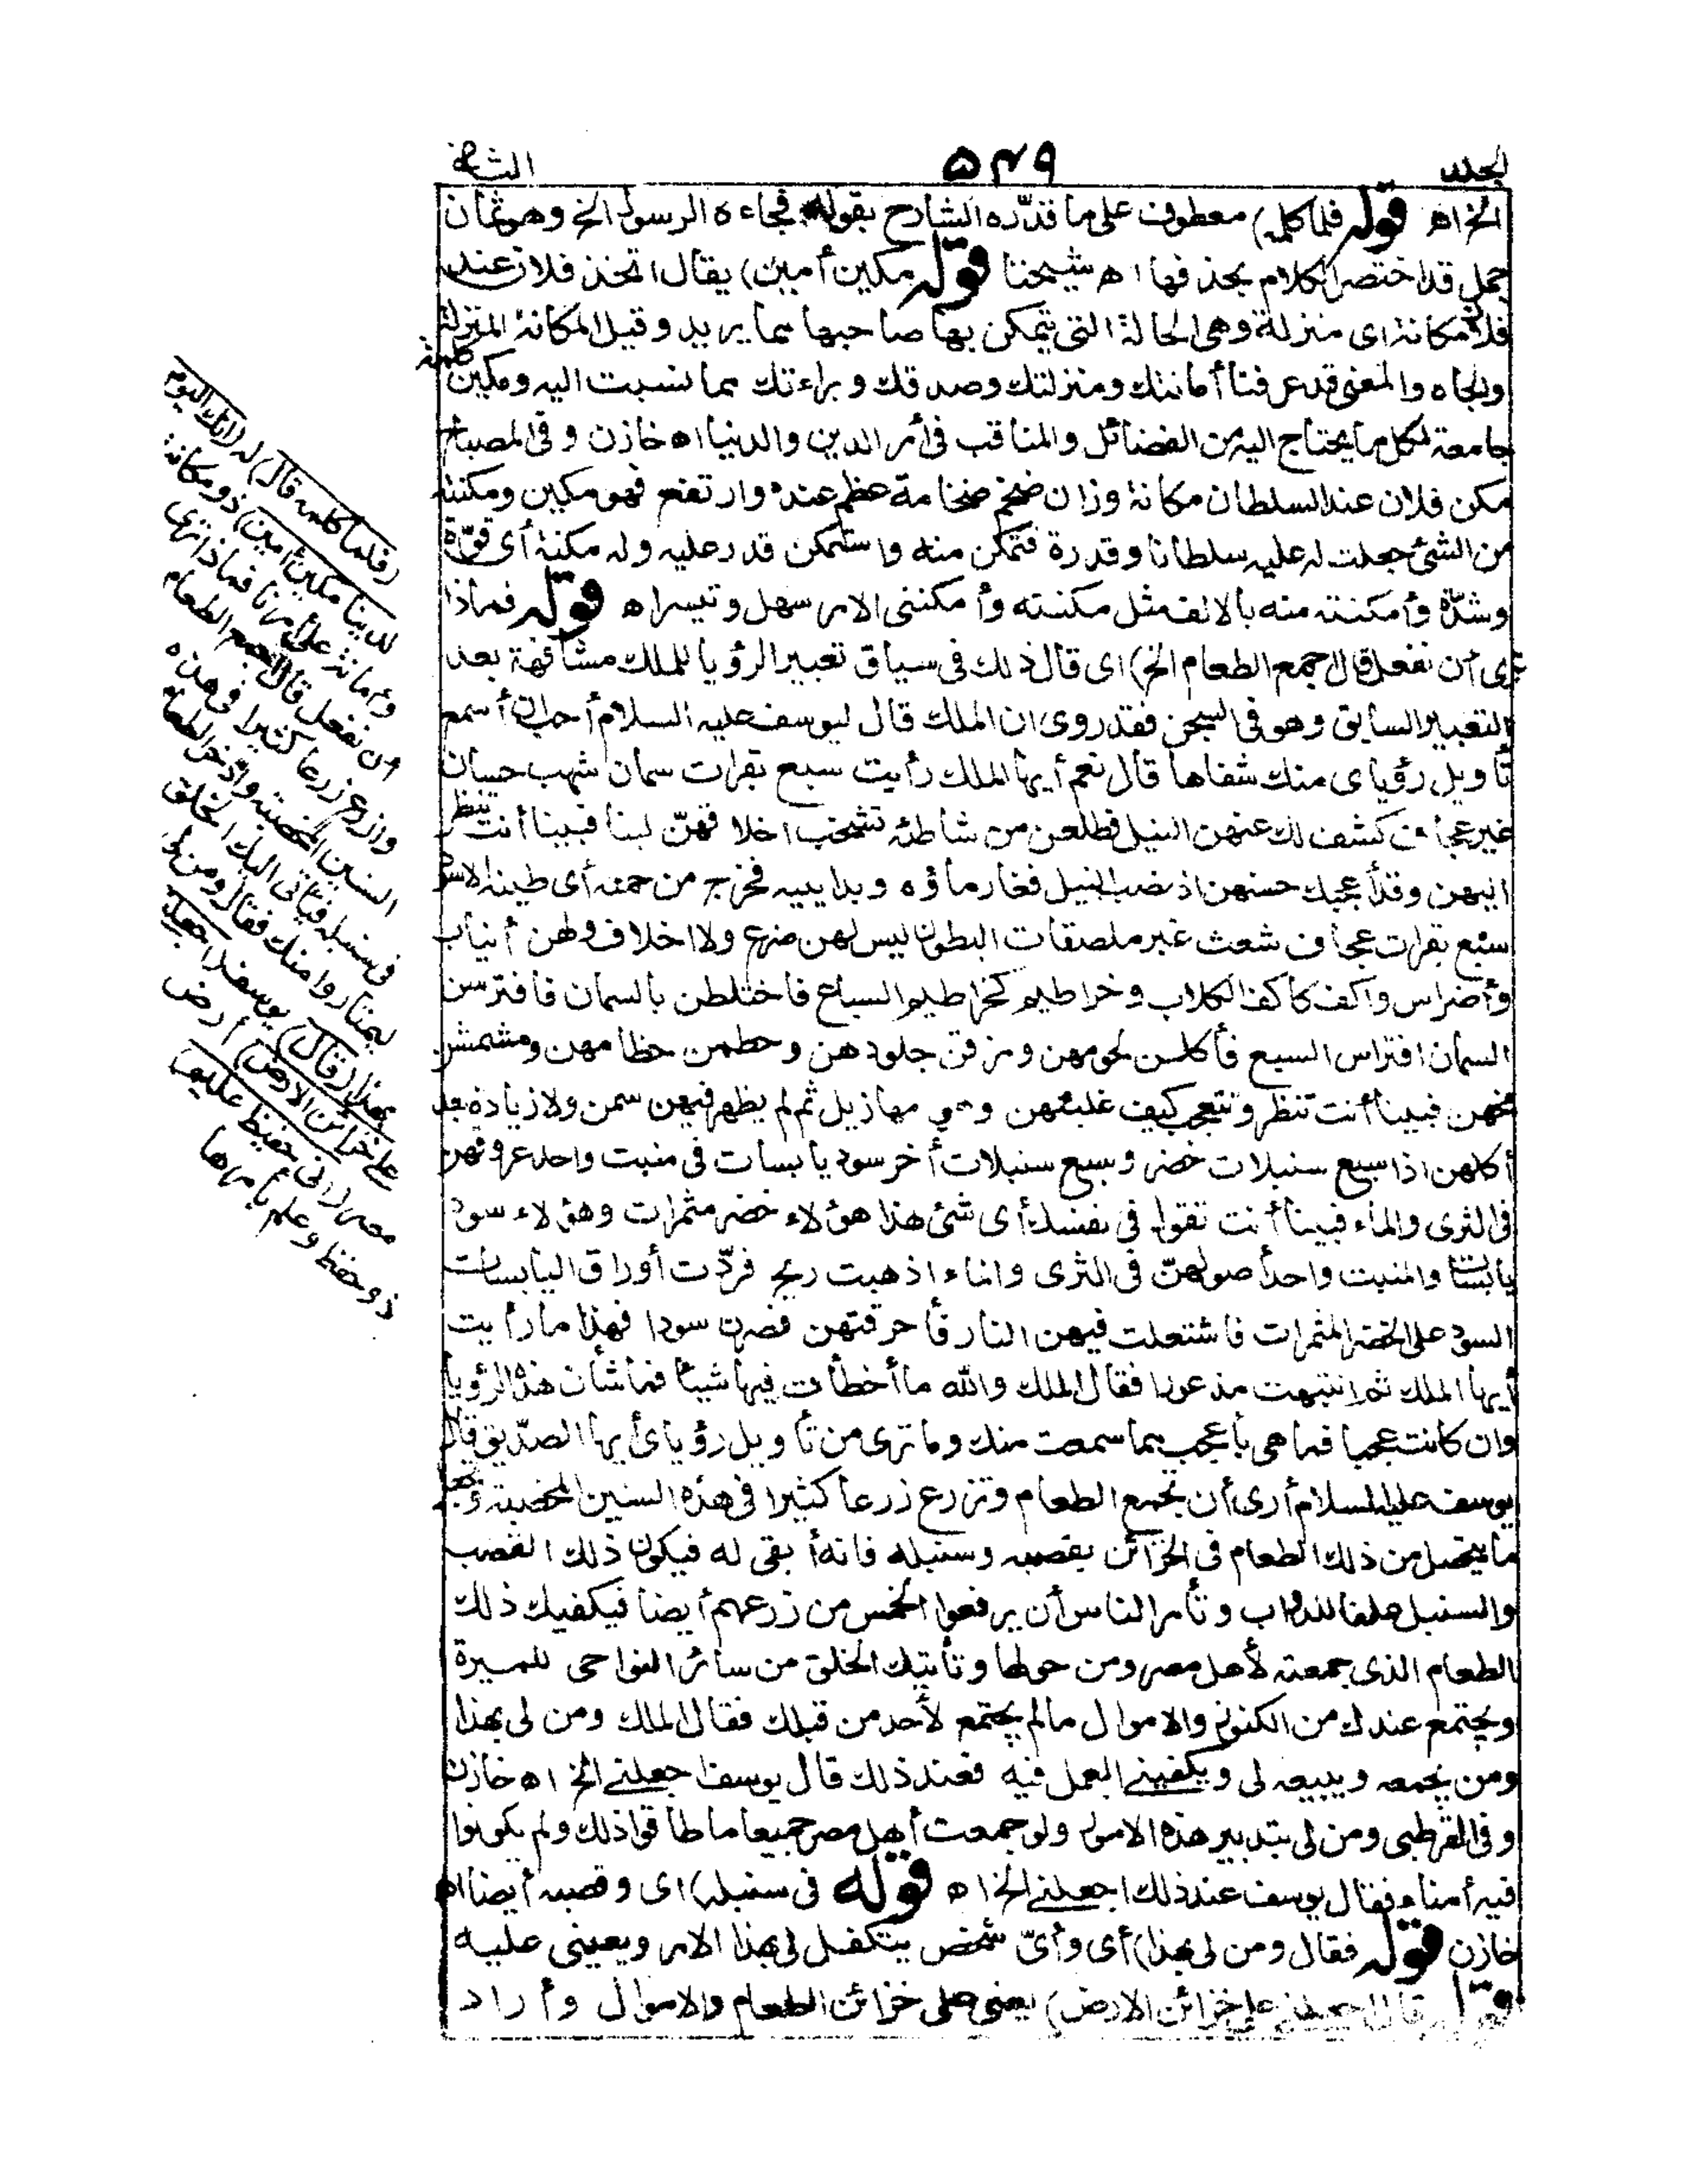 الجلد ٥٤٩ الثانى
الخ اه قوله فلما كلمه) معطوف على ما قدّره الشارح بقوله فجاءه الرسول الخ وهو ثمان
جمل قد اختصر الكلام بحذفها اه شيخنا قوله مكين أمين) يقال اتخذ فلان عند
فلان مكانة اى منزلة وهى الحالة التى يتمكن بها صاحبها مما يريد وقيل المكانة المنزلة
والجاه والمعنى قد عرفنا أمانتك ومنزلتك وصدقك وبراءتك مما نسبت اليه ومكين كلمة
جامعة لكل ما يحتاج اليه من الفضائل والمناقب فى أمر الدين والدنيا اه خازن وفى المصباح
مكن فلان عند السلطان مكانة وزان ضخم ضخامة عظم عنده وارتفع فهو مكين ومكنته
من الشئ جعلت له عليه سلطانا وقدرة فتمكن منه واستمكن قدر عليه وله مكنة أى قوّة
وشدّة وأمكنته منه بالالف مثل مكنته وأمكننى الامر سهل وتيسر اه قوله فماذا
ترى أن نفعل قال اجمع الطعام الخ) اى قال ذلك فى سياق تعبير الرؤيا للملك مشافهة بعد
التعبير السابق وهو فى السجن فقد روى ان الملك قال ليوسف عليه السلام أحب أن أسمع
تأويل رؤياى منك شفاها قال نعم أيها الملك رأيت سبع بقرات سمان شهب حسان
غير عجاف كشف لك عنهن النيل فطلعن من شاطئه تشخب اخلافهنّ لبنا فبينا أنت تنظر
اليهن وقد أعجبك حسنهن اذ نضب النيل فغار ماؤه وبدا يبسه فخرج من حمئه أى طينه الاسود
سبع بقرات عجاف شعث غبر ملصقات البطون ليس لهن ضرع ولا اخلاف ولهن أنياب
وأضراس واكف كاكف الكلاب وخراطيم كخراطيم السباع فاختلطن بالسمان فافترسن
السمان افتراس السبع فأكلن لحومهن ومزقن جلودهن وحطمن حظامهن ومشمشن
مخهن فبينا أنت تنظر وتتعجب كيف غلبنهن وهى مهازيل ثم لم يظهر فيهن سمن ولا زيادة بعد
أكلهن اذا سبع سنبلات خضر وسبع سنبلات أخر سود يابسات فى منبت واحد عروقهن
فى الثرى والماء فبينا أنت تقول فى نفسك أى شئ هذا هؤلاء خضر مثمرات وهؤلاء سود
يابسات والمنبت واحد أصولهنّ فى الثرى واناء اذ هبت ريح فردّت أوراق اليابسات
السود على الخضر المثمرات فاشتعلت فيهن النار فأحرقتهن فصرن سودا فهذا ما رأيت
أيها الملك ثم انتبهت مذعورا فقال الملك والله ما أخطأت فيها شيئا فما شأن هذه الرؤيا
وان كانت عجبا فما هى بأعجب مما سمعت منك وما ترى من تأويل رؤياى أيها الصدّيق قال
يوسف عليه السلام أرى أن تجمع الطعام وتزرع زرعا كثيرا فى هذه السنين المخصبة وتجعل
ما يتحصل من ذلك الطعام فى الخزائن بقصبه وسنبله فانه أبقى له فيكون ذلك القصب
والسنبل علفا للدواب وتأمر الناس أن يرفعوا الخمس من زرعهم أيضا فيكفيك ذلك
الطعام الذى جمعته لأهل مصر ومن حولها وتأتيك الخلق من سائر النواحى للميرة
ويجتمع عندك من الكنوز والاموال ما لم يجتمع لأحد من قبلك فقال الملك ومن لى بهذا
ومن يجمعه ويبيعه لى ويكفينى العمل فيه فعند ذلك قال يوسف اجعلنى الخ اه خازن
وفى القرطبى ومن لى بتدبير هذه الامور ولو جمعت أهل مصر جميعا ما طاقوا ذلك ولم يكونوا
فيه أمناء فقال يوسف عند ذلك اجعلنى الخ اه قوله فى سنبله) اى وقصبه أيضا اه
خازن قوله فقال ومن لى بهذا) أى وأىّ شخص يتكفل لى بهذا الامر ويعيننى عليه
قوله قال اجعلنى على خزائن الارض) يعنى على خزائن الطعام والاموال وأراد
(فلما كلمه قال) له (انك اليوم
لدينا مكين أمين) ذو مكانة
وأمانة على أمرنا فماذا ترى
أن نفعل قال اجمع الطعام
وازرع زرعا كثيرا فى هذه
السنين المخصبة وادّخر الطعام
فى سنبله فيأتى اليك الخلق
ليمتاروا منك فقال ومن لى
بهذا (قال) يوسف (اجعلنى
على خزائن الارض) أرض
مصر (انى حفيظ عليم)
ذو حفظ وعلم بأمرها